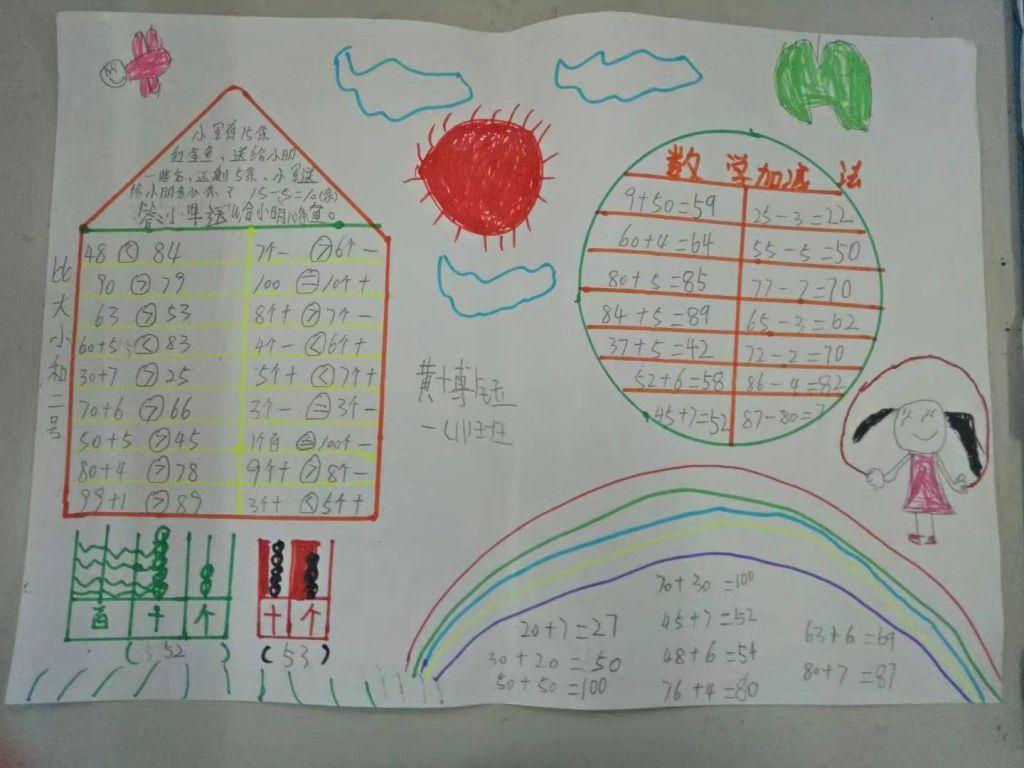 小军有15条
红金鱼、送给小明
一些后、还剩5条、小军送
给小明多少条？ 15-5=10(条)
答:小军送给小明10条鱼。
比大小和二号
48 < 84
90 > 79
63 > 53
60+5 < 83
30+7 > 25
70+6 > 66
50+5 > 45
80+4 > 78
99+1 > 89
7个一 > 6个一
100 = 10个十
8个十 > 7个一
4个一 < 6个十
5个十 < 7个十
3个一 = 3个一
1个百 = 100个一
9个十 > 8个一
3个十 < 5个十
百 十 个
(52)
十 个
(53)
数学加减法
9+50=59
60+4=64
80+5=85
84+5=89
37+5=42
52+6=58
45+7=52
25-3=22
55-5=50
77-7=70
65-3=62
72-2=70
86-4=82
87-80=7
20+7=27
30+20=50
50+50=100
70+30=100
45+7=52
48+6=54
76+4=80
63+6=69
80+7=87